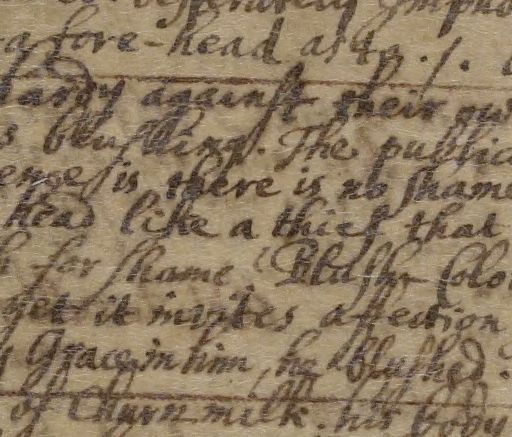 a fore-head as to . / .
hardy against their
blushing. The public
ence is there is no shame
head like a thief that
for shame Blush Colo
yet it invites affection
Grace in him, he blushed.
of Churn milk. his body